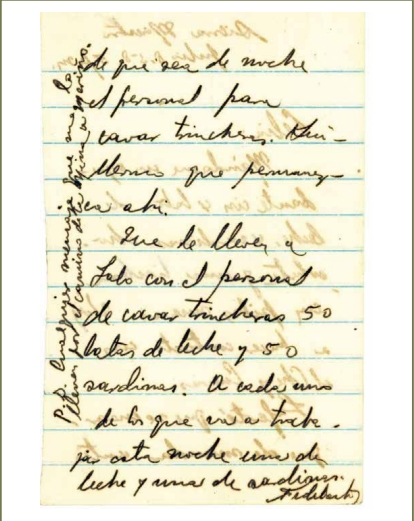 de que sea de noche
el personal para
cavar trincheras. Gui-
llermo que permanez-
ca ahí.
Que le lleven a
Lalo con el personal
de cavar trincheras 50
latas de leche y 50
sardinas. A cada uno
de los que va a traba-
jar esta noche una de
leche y una de sardinas.
P.D. Cualquier mensaje que me lo
lleven por el camino de la Mina a